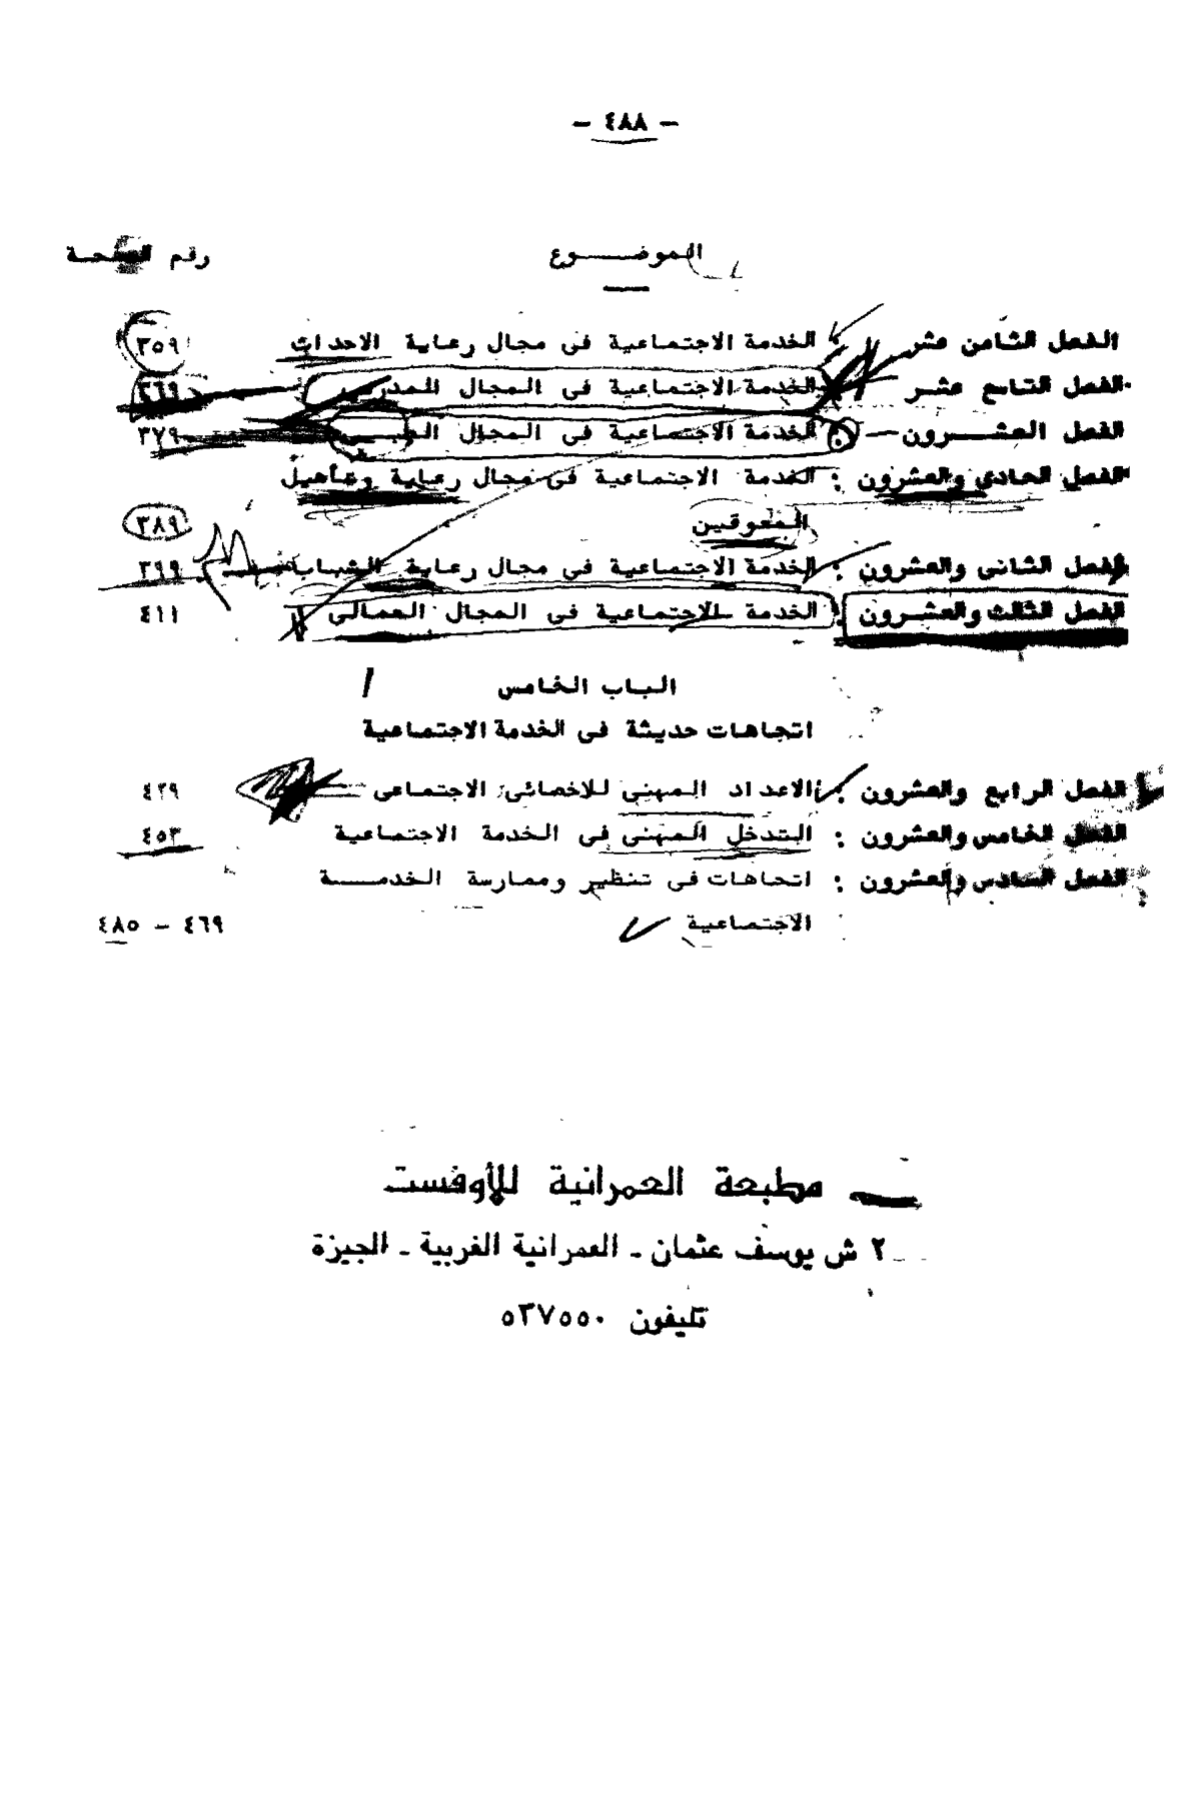 - ٤٨٨ -
الموضــــوع رقم الصفحة
الفصل الثامن عشر الخدمة الاجتماعية فى مجال رعاية الاحداث ٣٥٩
الفصل التاسع عشـر الخدمة الاجتماعية فى المجال المدرسى ٣٦٩
الفصل العشـــرون الخدمة الاجتماعية فى المجال ٣٧٩
الفصل الحادى والعشرون : الخدمة الاجتماعية فى مجال رعاية وتأهيل
المعوقين ٣٨٩
الفصل الثانى والعشرون : الخدمة الاجتماعية فى مجال رعاية الشباب ٣٩٩
الفصل الثالث والعشـرون : الخدمة الاجتماعية فى المجال العمالى ٤١١
الباب الخامس
اتجاهات حديثة فى الخدمة الاجتماعية
الفصل الرابع والعشرون : الاعداد المهنى للاخصائى الاجتماعى ٤٢٩
الفصل الخامس والعشرون : التدخل المهنى فى الخدمة الاجتماعية ٤٥٣
الفصل السادس والعشرون : اتجاهات فى تنظير وممارسة الخدمـــة
الاجتماعية ٤٦٩ - ٤٨٥
مطبعة العمرانية للأوفست
٢ ش يوسف عثمان - العمرانية الغربية - الجيزة
تليفون ٥٣٧٥٥٠